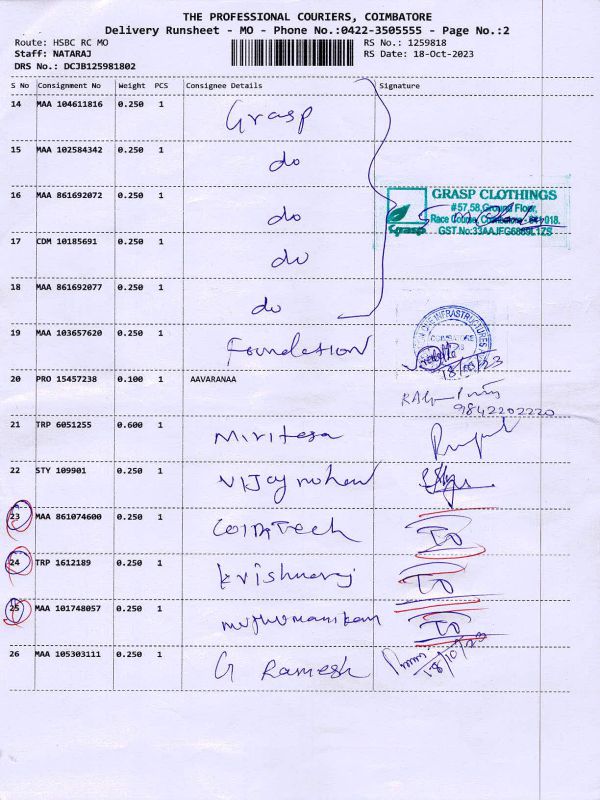 THE PROFESSIONAL COURIERS, COIMBATORE
Delivery Runsheet - MO - Phone No.:0422-3505555 - Page No.:2
Route: HSBC RC MO RS No.: 1259818
Staff: NATARAJ RS Date: 18-Oct-2023
DRS No.: DCJB125981802
S No Consignment No Weight PCS Consignee Details Signature
14 MAA 104611816 0.250 1 Grasp
15 MAA 102584342 0.250 1 do
16 MAA 861692072 0.250 1 do
GRASP CLOTHINGS
#57,58,Ground Floor,
Race Course, Coimbatore - 641 018.
Grasp GST.No:33AAJFG6889L1ZS
17 CDM 10185691 0.250 1 do
18 MAA 861692077 0.250 1 do
19 MAA 103657620 0.250 1 Foundation
INFRASTRUCTURES
COIMBATORE
18/10/23
20 PRO 15457238 0.100 1 AAVARANAA
9842202220
21 TRP 6051255 0.600 1
22 STY 109901 0.250 1 Vijay mohan
23 MAA 861074600 0.250 1 CoimTech ID
24 TRP 1612189 0.250 1 Krishnaraj ID
25 MAA 101748057 0.250 1 muthumanikam ID
26 MAA 105303111 0.250 1 G Ramesh
18/10/23